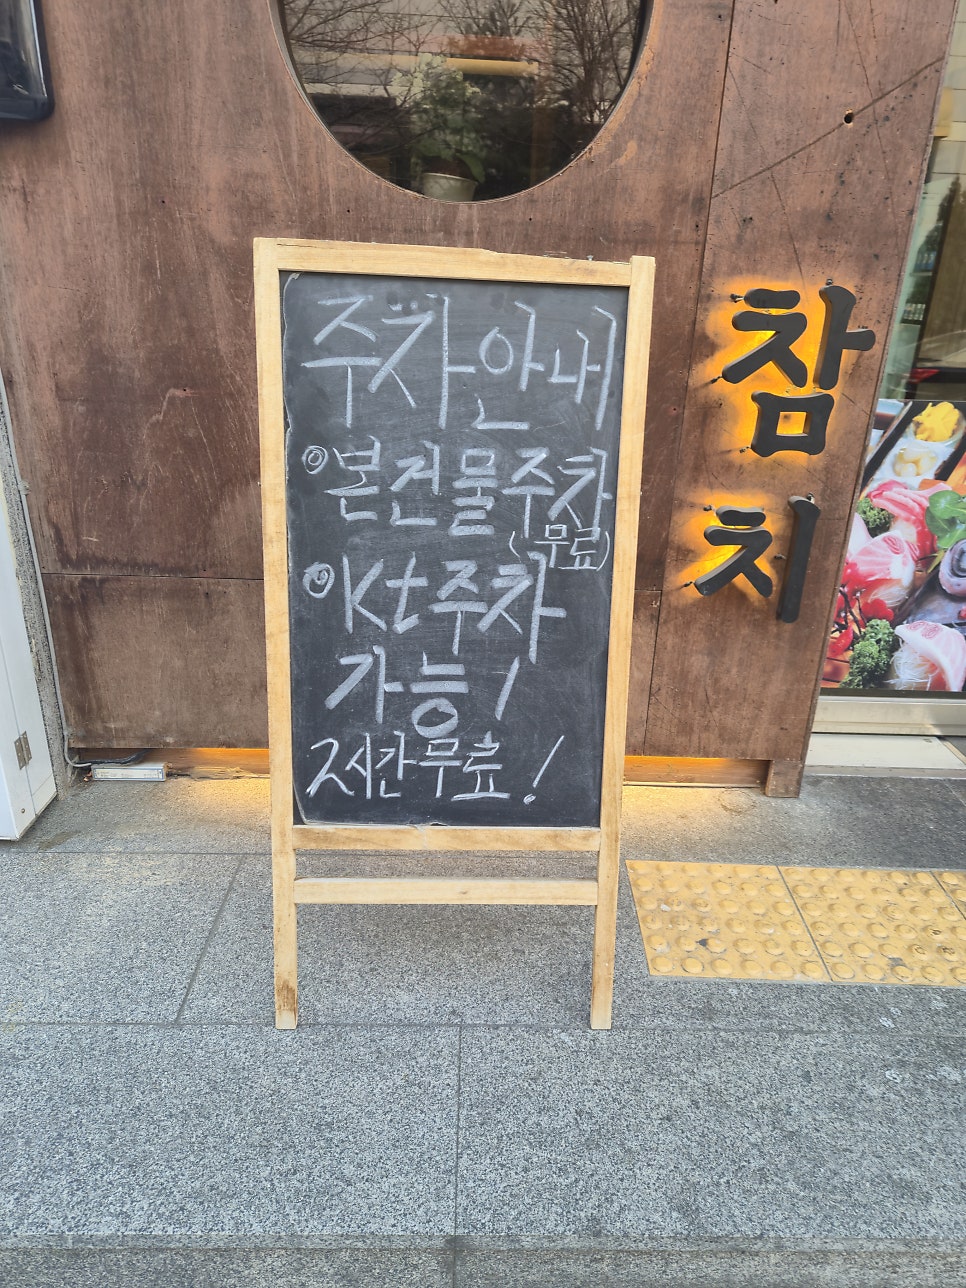 주차안내
◎본건물주차
(무료)
◎Kt주차
가능!
2시간무료!
참
치